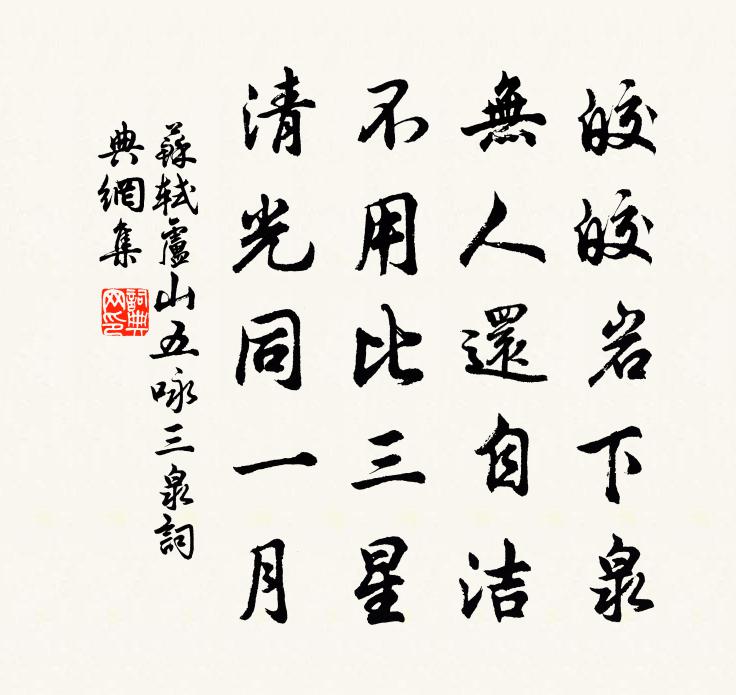 皎皎岩下泉
無人還自洁
不用比三星
清光同一月
蘇軾廬山五咏三泉詞
典網集
詞典網印